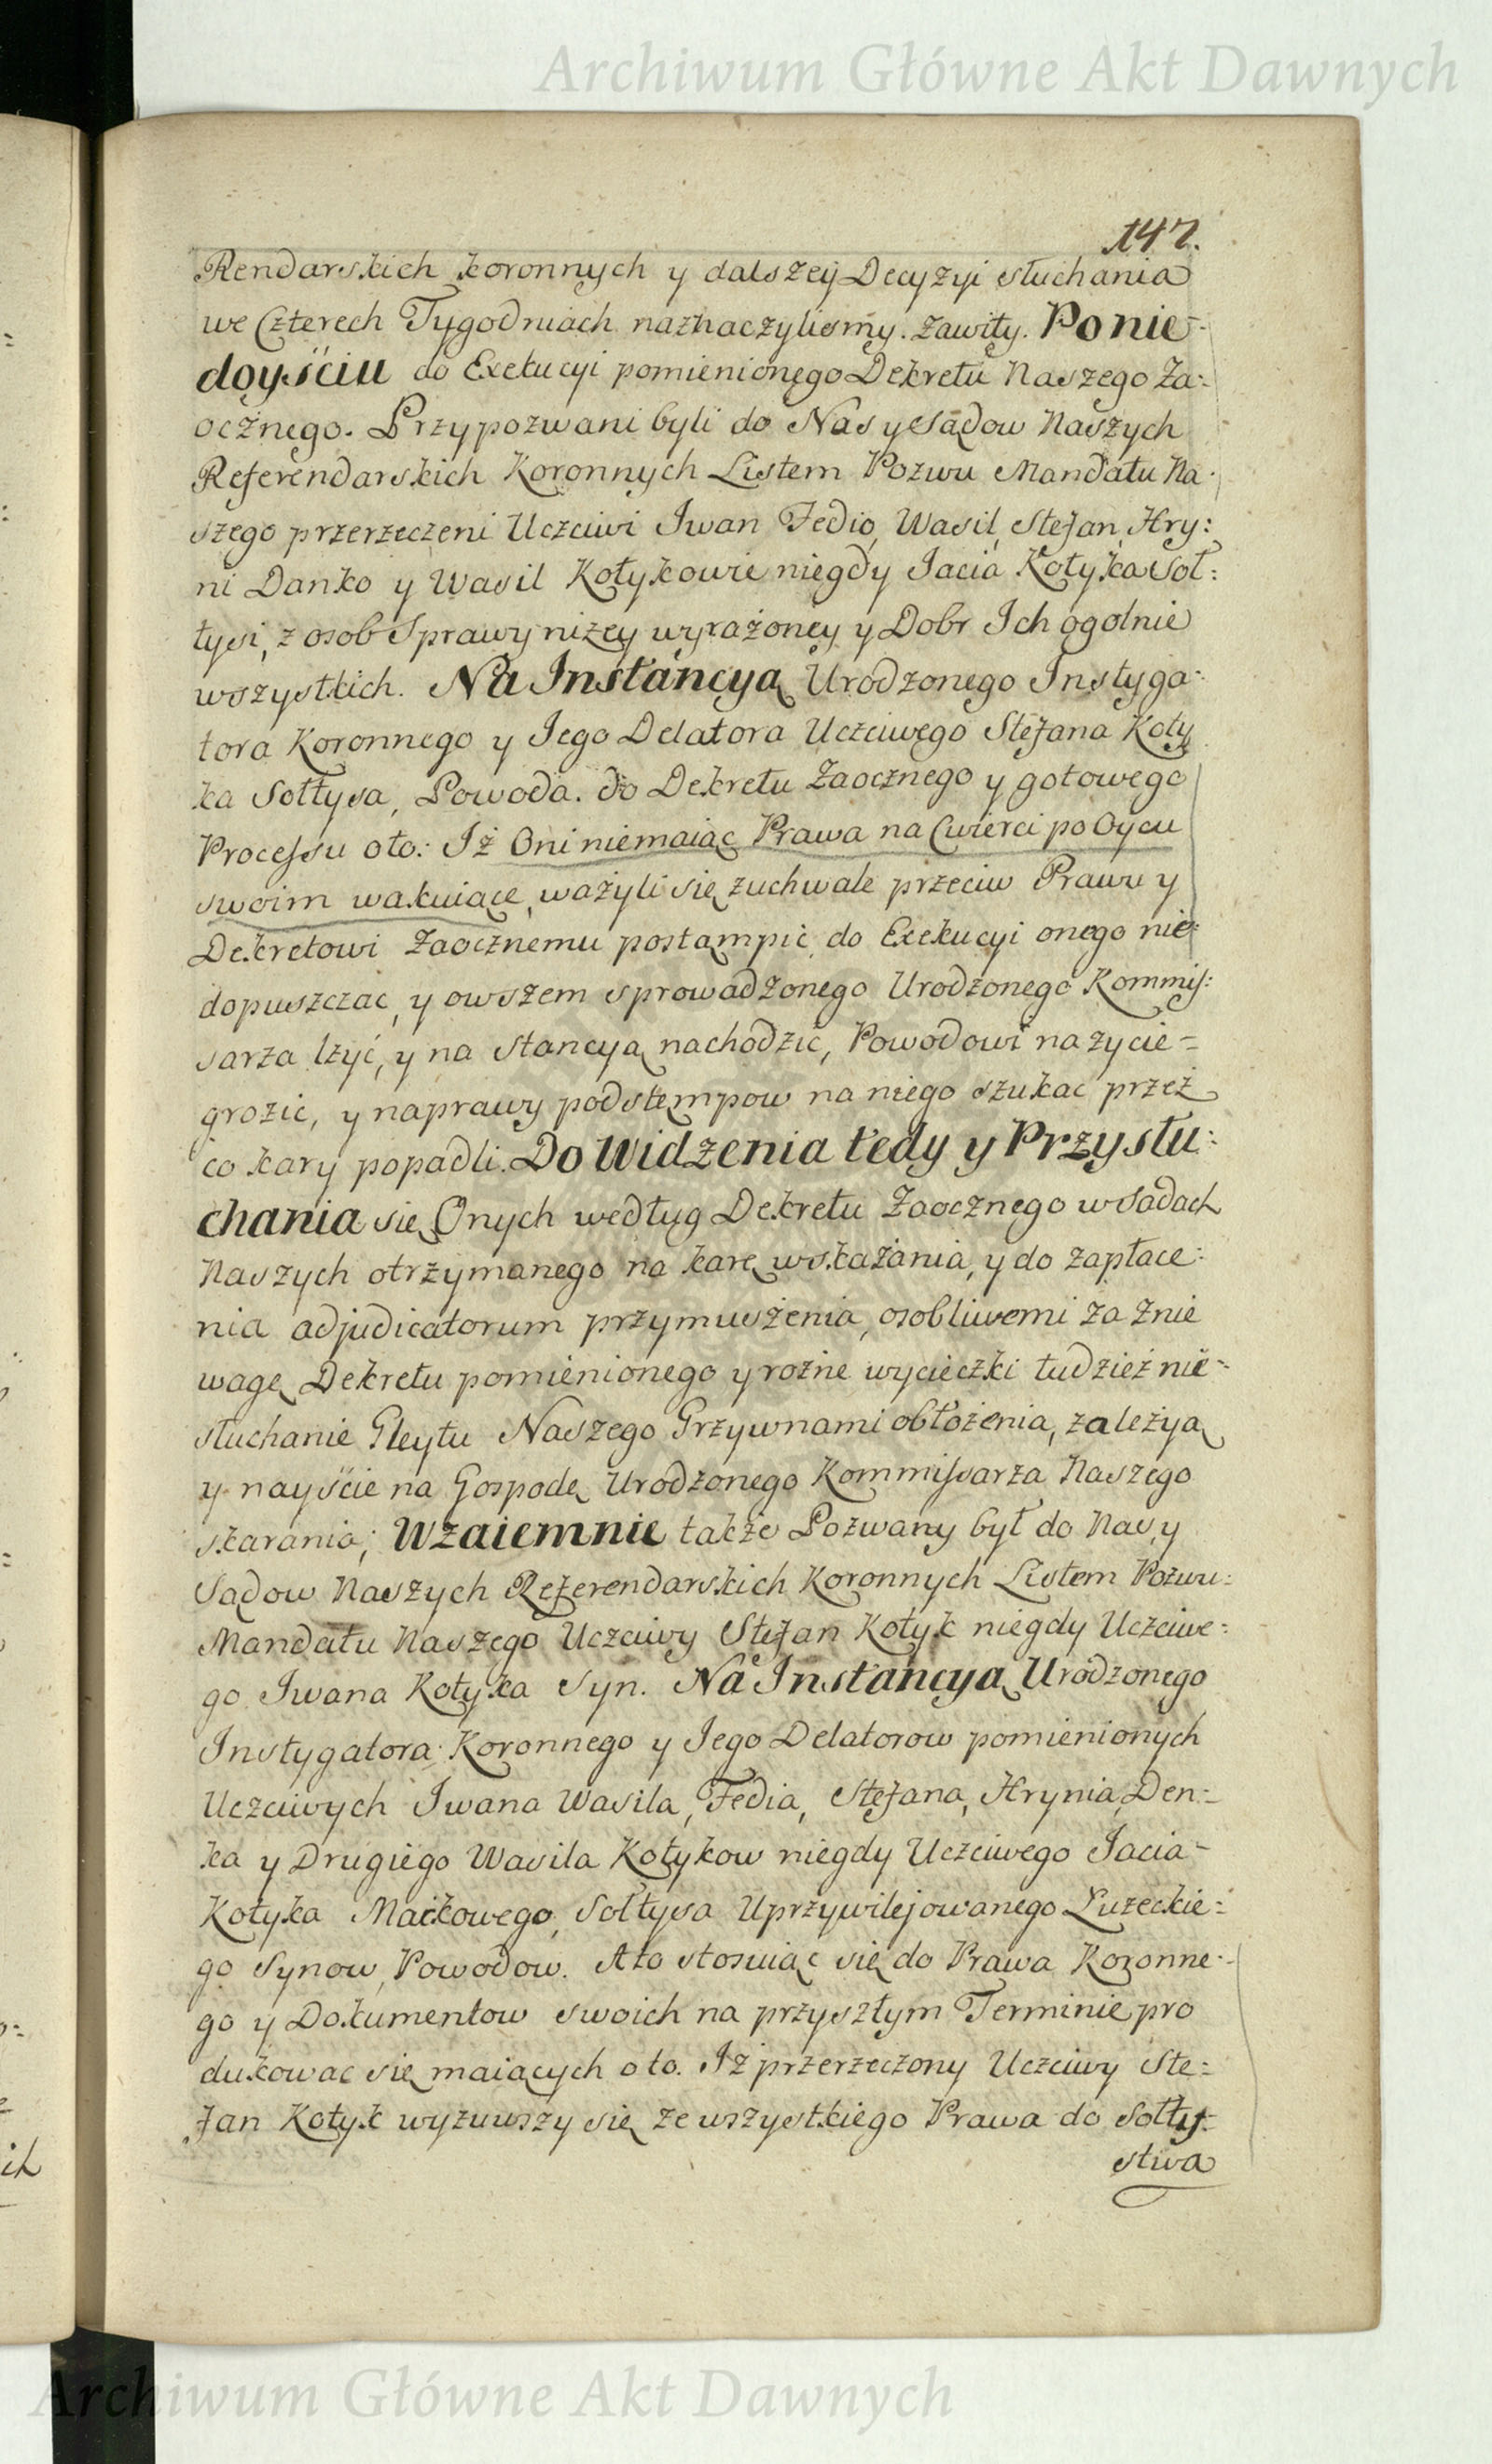 Archiwum Główne Akt Dawnych
147.
Rendarskich koronnych y dalszey Decyzyi słuchania
we Czterech Tygodniach naznaczylismy. zawity. Po nie-
doyściu do Exekucyi pomienionego Dekretu Naszego Za:
ocznego. Przypozwani byli do Nas y Sądow Naszych
Referendarskich Koronnych Listem Pozwu Mandatu Na-
szego przerzeczeni Uczciwi Iwan Fedio, Wasil, Stefan, Hry:
ni Danko y Wasil Kotykowie niegdy Iacia Kotyka Soł:
tysi, z osob Sprawy niżey wyrażoney y Dobr Ich ogolnie
wszystkich. Na Instancyą Urodzonego Instyga-
tora Koronnego y Iego Delatora Uczciwego Stefana Koty
ka Sołtysa, Powoda. do Dekretu Zaocznego y gotowego
Processu oto: Iż Oni niemaiąc Prawa na Cwierci po Oycu
swoim wakuiące, ważyli się zuchwale przeciw Prawu y
Dekretowi Zaocznemu postąmpic, do Exekucyi onego nie-
dopuszczac, y owszem sprowadzonego Urodzonego Kommis:
sarza lżyć, y na Stancyą nachodzic, Powodowi na zycie-
grozic, y naprawy podstęmpow na niego szukac przez
co kary popadli. Do Widzenia tedy y Przysłu:
chania się Onych według Dekretu Zaocznego w Sądach
Naszych otrzymanego na karę wskazania, y do zapłace:
nia adjudicatorum przymuszenia, osobliwemi za znie
wagę Dekretu pomienionego y rozne wycieczki tudzież nie-
słuchanie Gleytu Naszego Grzywnami obłożenia, zależyą
y nayście na Gospodę Urodzonego Kommissarza Naszego
skarania; Wzaiemnie także Pozwany był do Nas, y
Sądow Naszych Referendarskich Koronnych Listem Pozwu:
Mandatu Naszego Uczciwy Stefan Kotyk niegdy Uczciwe:
go Iwana Kotyka Syn. Na Instancyą Urodzonego
Instygatora Koronnego y Iego Delatorow pomienionych
Uczciwych Iwana Wasila, Fedia, Stefana, Hrynia, Den:
ka y Drugiego Wasila Kotykow niegdy Uczciwego Iacia-
Kotyka Maćkowego, Sołtysa Uprzywilejowanego Łużeckie:
go Synow, Powodow. A to stosuiąc się do Prawa Koronne-
go y Dokumentow swoich na przyszłym Terminie pro
dukowac się maiących o to. Iż przerzeczony Uczciwy Ste:
fan Kotyk wyzuwszy się ze wszystkiego Prawa do Sołty-
stwa
Archiwum Główne Akt Dawnych